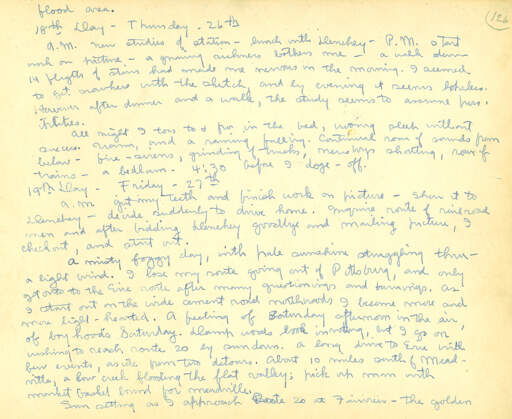 flood area.
126
18th Day - Thursday - 26th
A.M. new studies of station - lunch with Llenehey - P.M. start
work on picture - a growing sickness bothers me - a walk down
14 flights of stairs had made me nervous in the morning. I seemed
to get nowhere with the sketch, and by evening it seems hopeless.
However after dinner and a walk, the study seems to assume pos-
ibilities.
All night I toss to & fro in the bed, wooing sleep without
success. and a raming Continual roar of sounds from
below - fire-sirens, grinding of trucks, newsboys shouting, roar of
trains - a bedlam. 4:30 before I doze-off.
19th Day - Friday - 27th
A.M. get my teeth and finish work on picture - show it to
Llenehey - decide suddenly to drive home. Inquire route of railroad
men and after bidding Llenehey goodbye and mailing picture, I
check out, and start out.
A misty foggy day, with pale sunshine struggling thru -
a light wind. I lose my route going out of Pittsburg, and only
get onto the Erie route after many questionings and turnings. As
I start out on the wide cement road northwards I become more and
more light-hearted. A feeling of Saturday afternoon in the air,
of boyhoods Saturday. Damp woods look inviting, but I go on,
wishing to reach route 20 by sundown. A long drive to Erie with
few events, aside from two detours. About 10 miles south of Mead-
ville, a low creek flooding the flat valley; pick up man with
market basket bound for meadville.
Sun setting as I approach Route 20 at - the golden